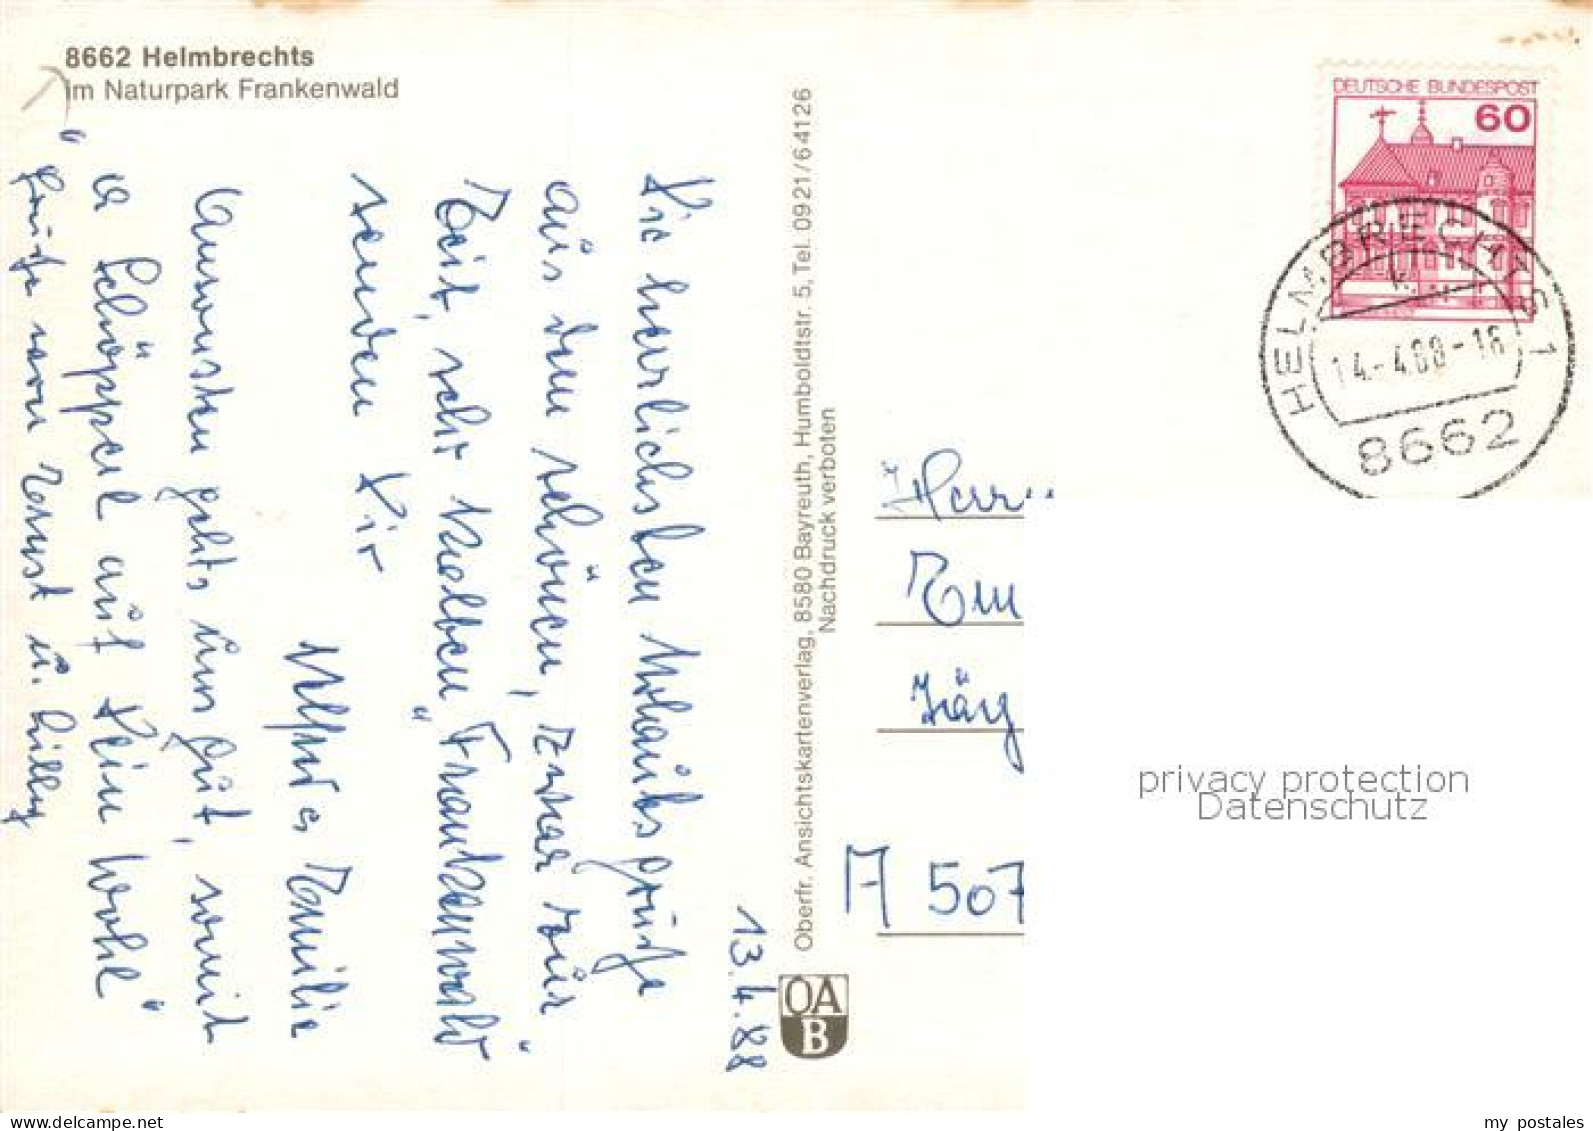 8662 Helmbrechts
im Naturpark Frankenwald
13.4.88
Die herrlichsten Urlaubsgrüße
aus dem schönen, zwar zur
Zeit, sehr kalten "Frankenwald"
senden Dir
Alfred Familie
Ansonsten gehts uns gut, somit
a Schöpperl auf Dein Wohl"
Grüße von Ernst u. Lilly
Oberfr. Ansichtskartenverlag, 8580 Bayreuth, Humboldtstr. 5, Tel. 0921/64126
Nachdruck verboten
OA
B
DEUTSCHE BUNDESPOST
60
HELMBRECHTS 1
14.-4.88-16
8662
Herr
A 507
privacy protection
Datenschutz
my postales